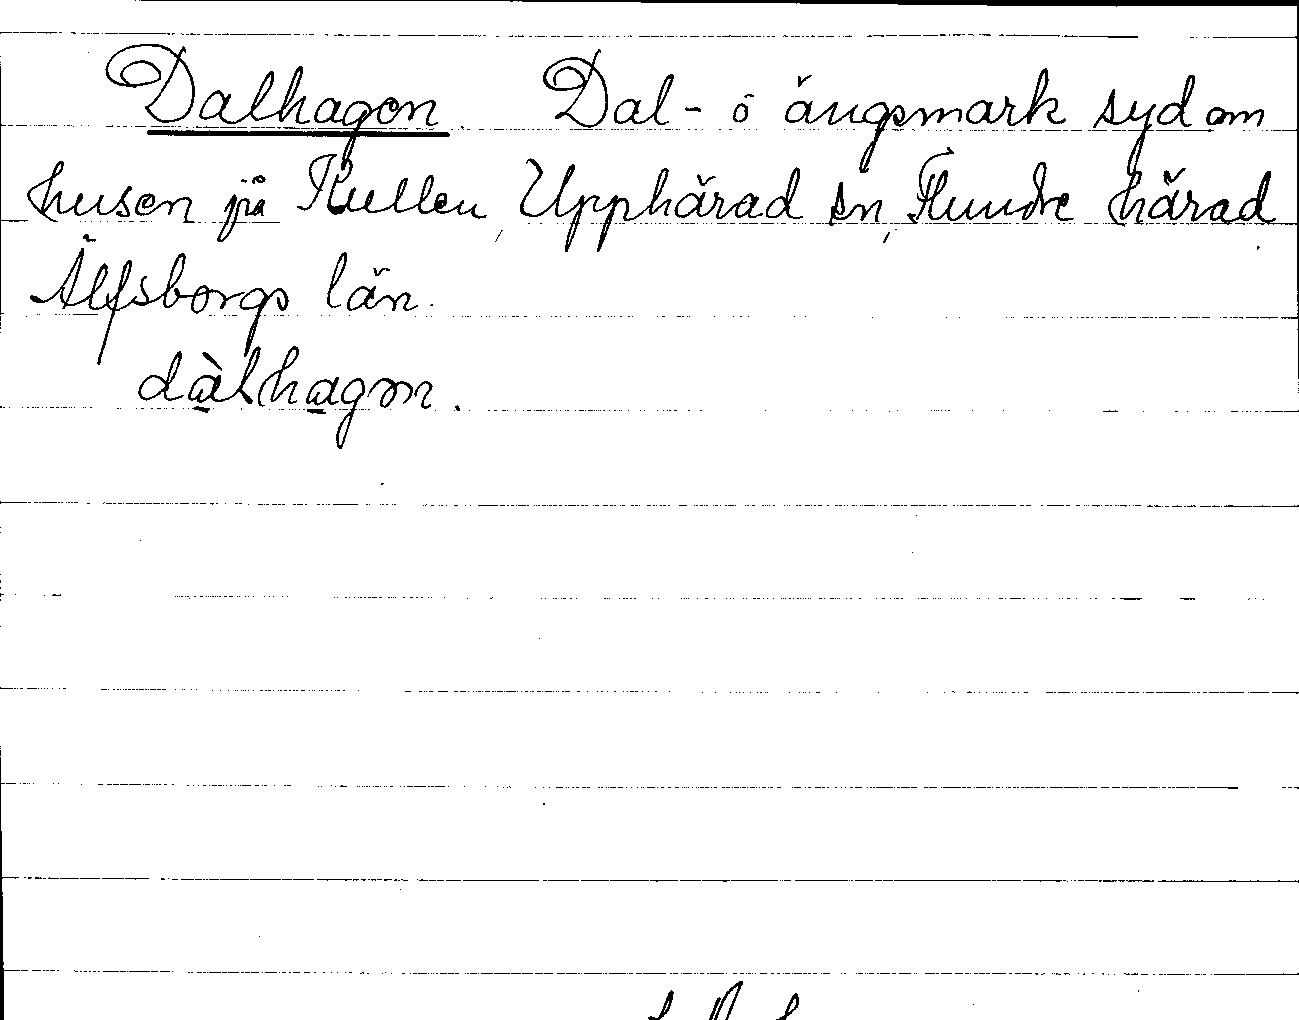 Dalhagen. Dal- o ängsmark syd om
husen på Kullen, Upphärad sn, Flundre härad,
Älfsborgs län.
dàlhagen.